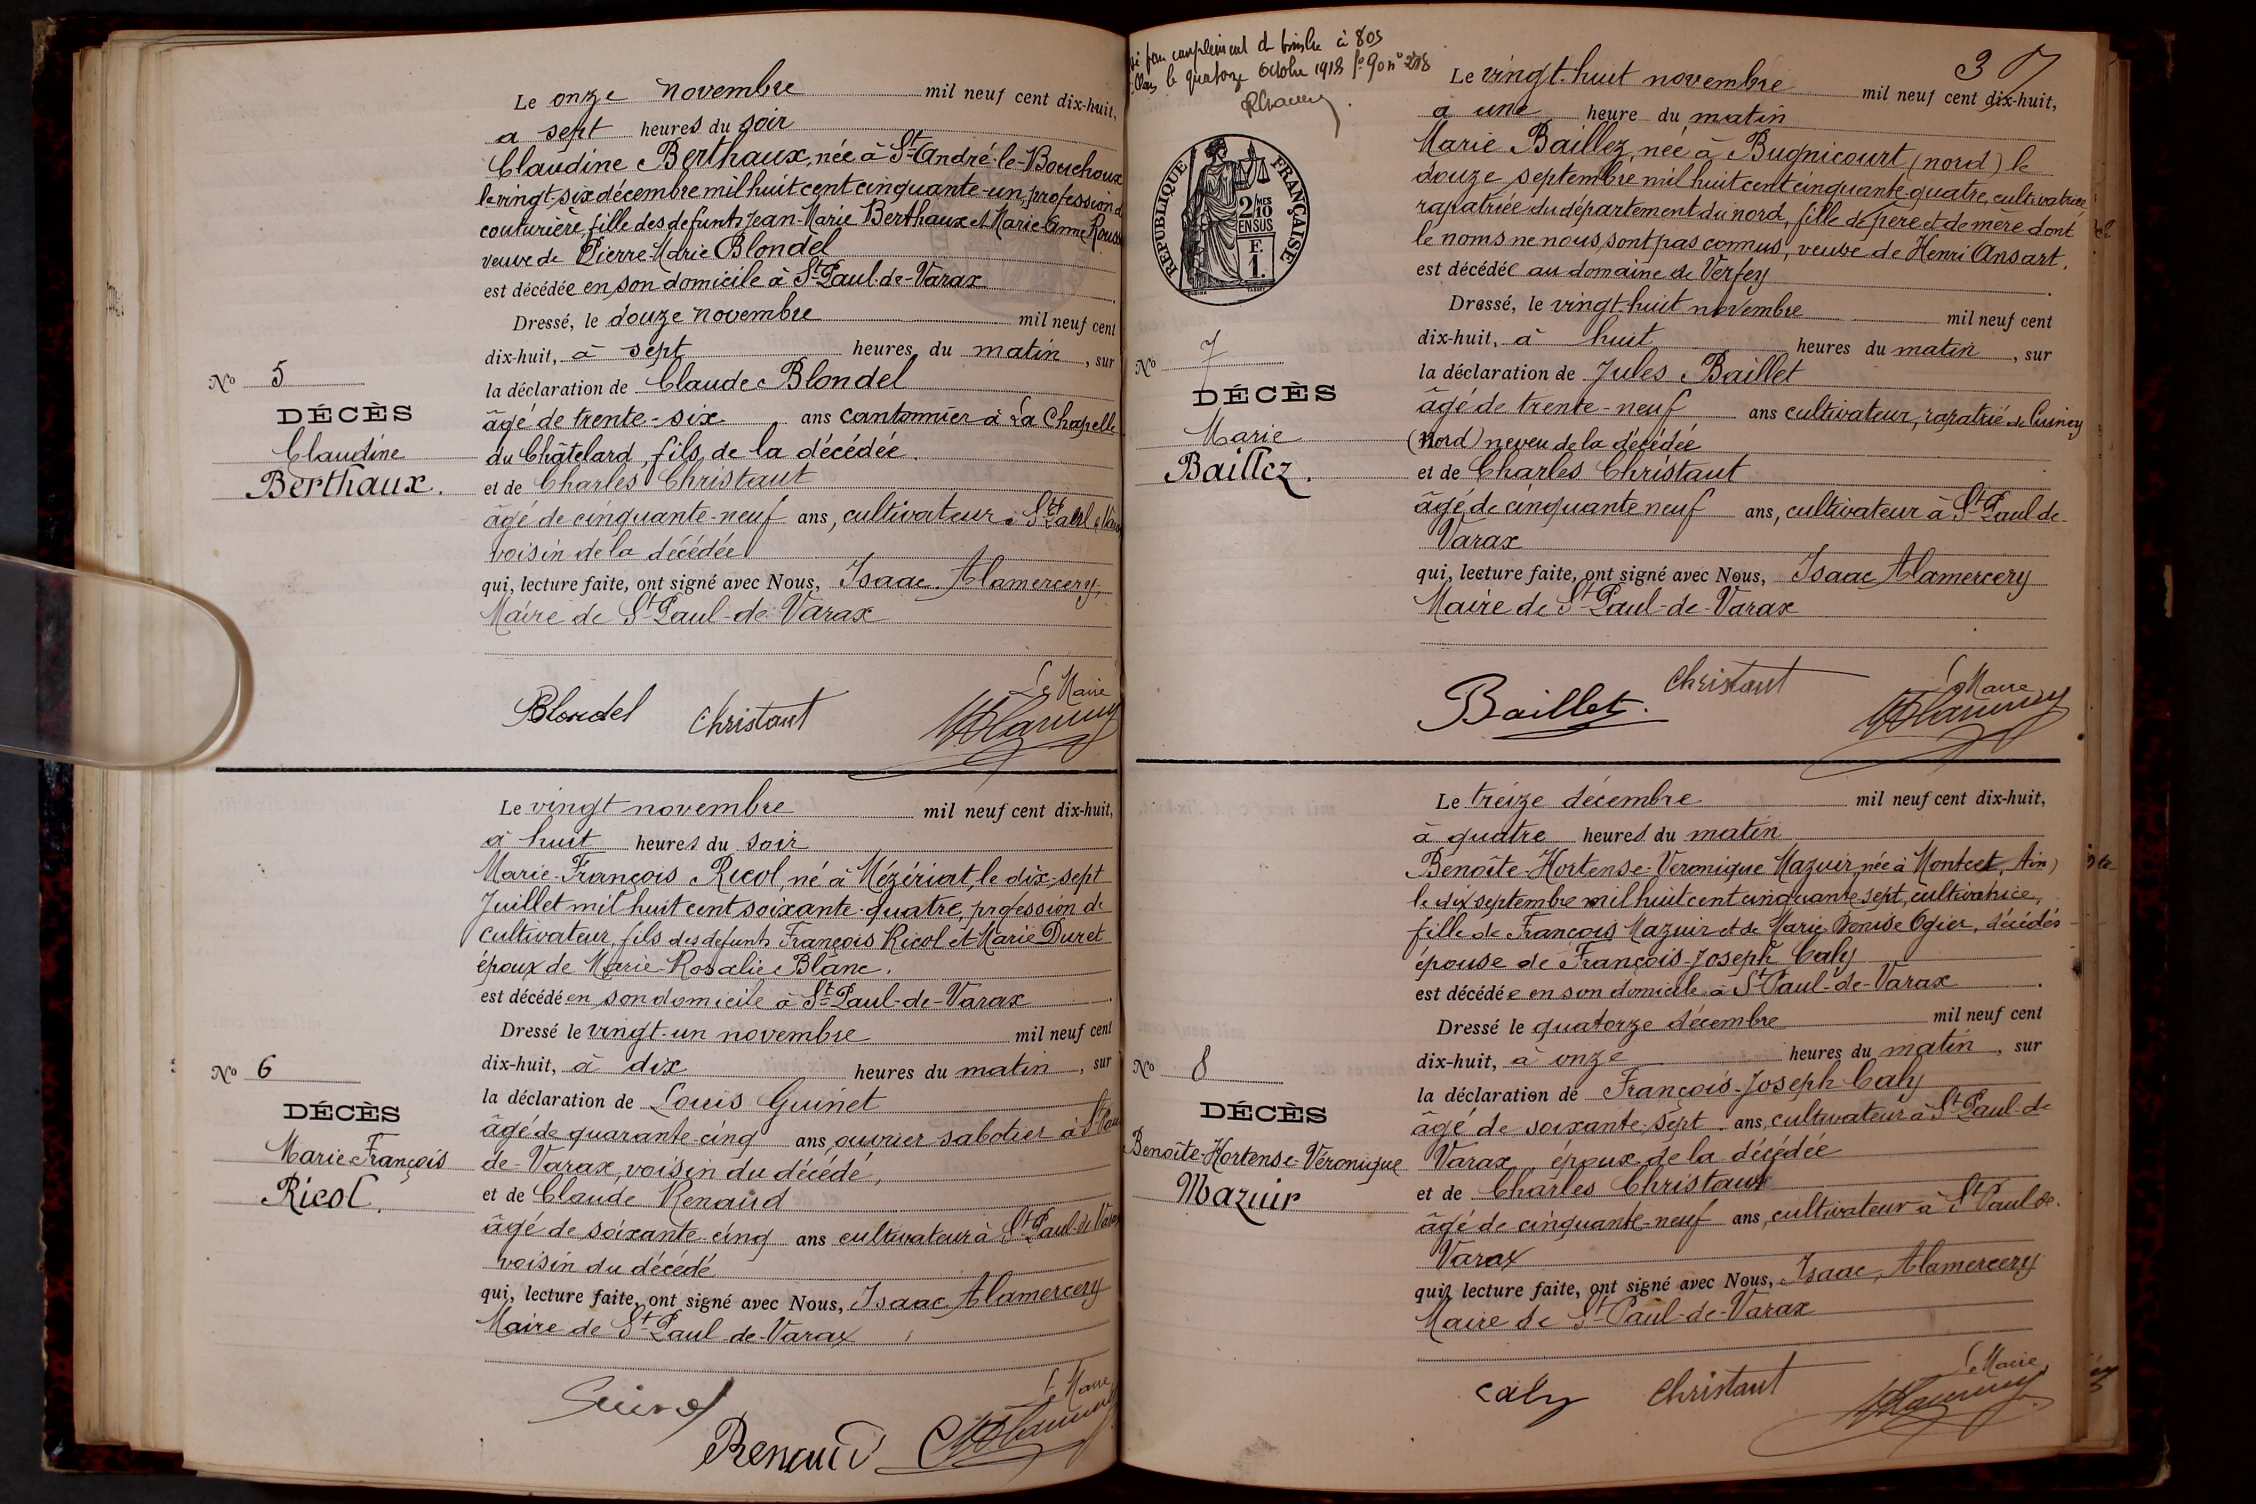 Le onze novembre mil neuf cent dix-huit,
a sept heures du soir
Claudine Berthaux, née à St-André-le-Bouchoux
le vingt-six décembre mil huit cent cinquante-un, profession d
couturière, fille des defunts Jean-Marie Berthaux et Marie-Anne
veuve de Pierre-Marie Blondel
est décédée en son domicile à St Paul-de-Varax
Dressé, le douze novembre mil neuf cent
dix-huit, à sept heures du matin, sur
la déclaration de Claude Blondel
âgé de trente-six ans cantonnier à La Chapelle
du Châtelard, fils de la décédée.
et de Charles Christaut
âgé de cinquante-neuf ans, cultivateur à St Paul
voisin de la décédée
qui, lecture faite, ont signé avec Nous, Isaac Alamercery,
Maire de St Paul-de-Varax
No 5
DÉCÈS
Claudine
Berthaux.
Blondel Christaut Le Maire
Le vingt novembre mil neuf cent dix-huit,
à huit heures du soir
Marie-François Ricol, né à Mézériat, le dix-sept
Juillet mil huit cent soixante-quatre, profession de
cultivateur, fils des defunts François Ricol et Marie Duret
époux de Marie-Rosalie Blanc.
est décédé en son domicile à St Paul-de-Varax
Dressé le vingt-un novembre mil neuf cent
dix-huit, à dix heures du matin, sur
la déclaration de Louis Guinet
âgé de quarante-cinq ans, ouvrier sabotier à St Paul
de-Varax, voisin du décédé,
et de Claude Renaud
âgé de soixante-cinq ans cultivateur à St Paul-de-Varax
voisin du décédé
qui, lecture faite, ont signé avec Nous, Isaac Alamercery
Maire de St Paul de-Varax
No 6
DÉCÈS
Marie-François
Ricol.
Guinet Renaud Le Maire
complément de timbre à 805
le quatorze Octobre 1918 fo 90 no 208
RÉPUBLIQUE FRANÇAISE
2/10 MES
EN SUS
F.
1.
37
Le vingt-huit novembre mil neuf cent dix-huit,
a une heure du matin
Marie Baillez, née à Bugnicourt (nord) le
douze septembre mil huit cent cinquante-quatre, cultivatrice
rapatriée du département du nord, fille de père et de mère dont
le noms ne nous sont pas connus, veuve de Henri Ansart.
est décédée au domaine de Verfey
Dressé, le vingt-huit novembre mil neuf cent
dix-huit, à huit heures du matin, sur
la déclaration de Jules Baillet
âgé de trente-neuf ans cultivateur, rapatrié de Cuincy
(Nord) neveu de la décédée
et de Charles Christaut
âgé de cinquante neuf ans, cultivateur à St Paul de-
Varax
qui, lecture faite, ont signé avec Nous, Isaac Alamercery
Maire de St Paul-de-Varax
No 7
DÉCÈS
Marie
Baillez.
Baillet. Christaut Le Maire
Le treize décembre mil neuf cent dix-huit,
à quatre heures du matin
Benoîte-Hortense-Veronique Mazuir, née à Montcet, Ain)
le dix septembre mil huit cent cinquante sept, cultivatrice,
fille de François Mazuir et de Marie Denise Ogier, décédés
épouse de François-Joseph Caly
est décédée en son domicile à St Paul-de-Varax
Dressé le quatorze décembre mil neuf cent
dix-huit, à onze heures du matin, sur
la déclaration de François-Joseph Caly
âgé de soixante-sept ans, cultivateur à St Paul-de
Varax, époux de la décédée
et de Charles Christaut
âgé de cinquante-neuf ans, cultivateur à St Paul de-
Varax
qui, lecture faite, ont signé avec Nous, Isaac, Alamercery
Maire de St Paul-de-Varax
No 8
DÉCÈS
Benoîte-Hortense-Véronique
Mazuir
Caly Christaut Le Maire